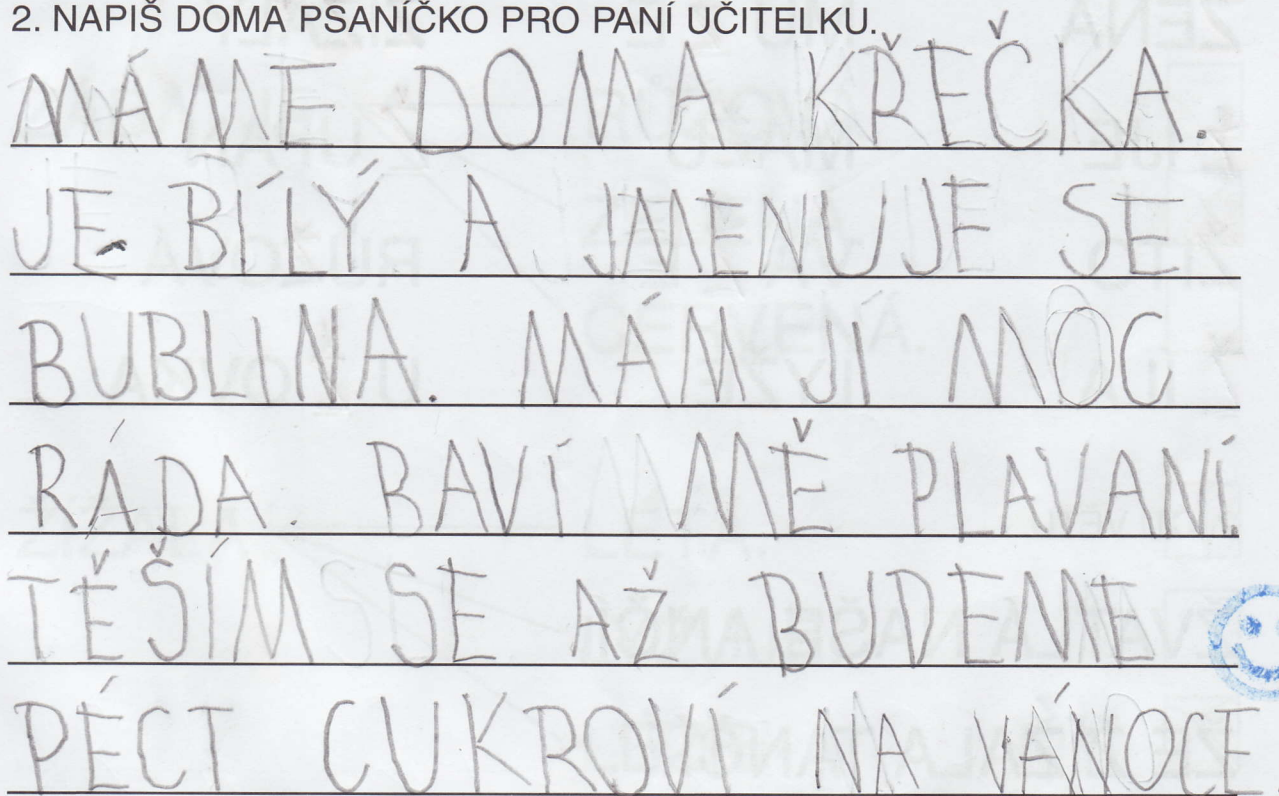 2. NAPIŠ DOMA PSANÍČKO PRO PANÍ UČITELKU.
MÁME DOMA KŘEČKA.
JE BÍLÝ A JMENUJE SE
BUBLINA. MÁM JI MOC
RÁDA. BAVÍ MĚ PLAVANÍ.
TĚŠÍM SE AŽ BUDEME
PÉCT CUKROVÍ NA VÁNOCE